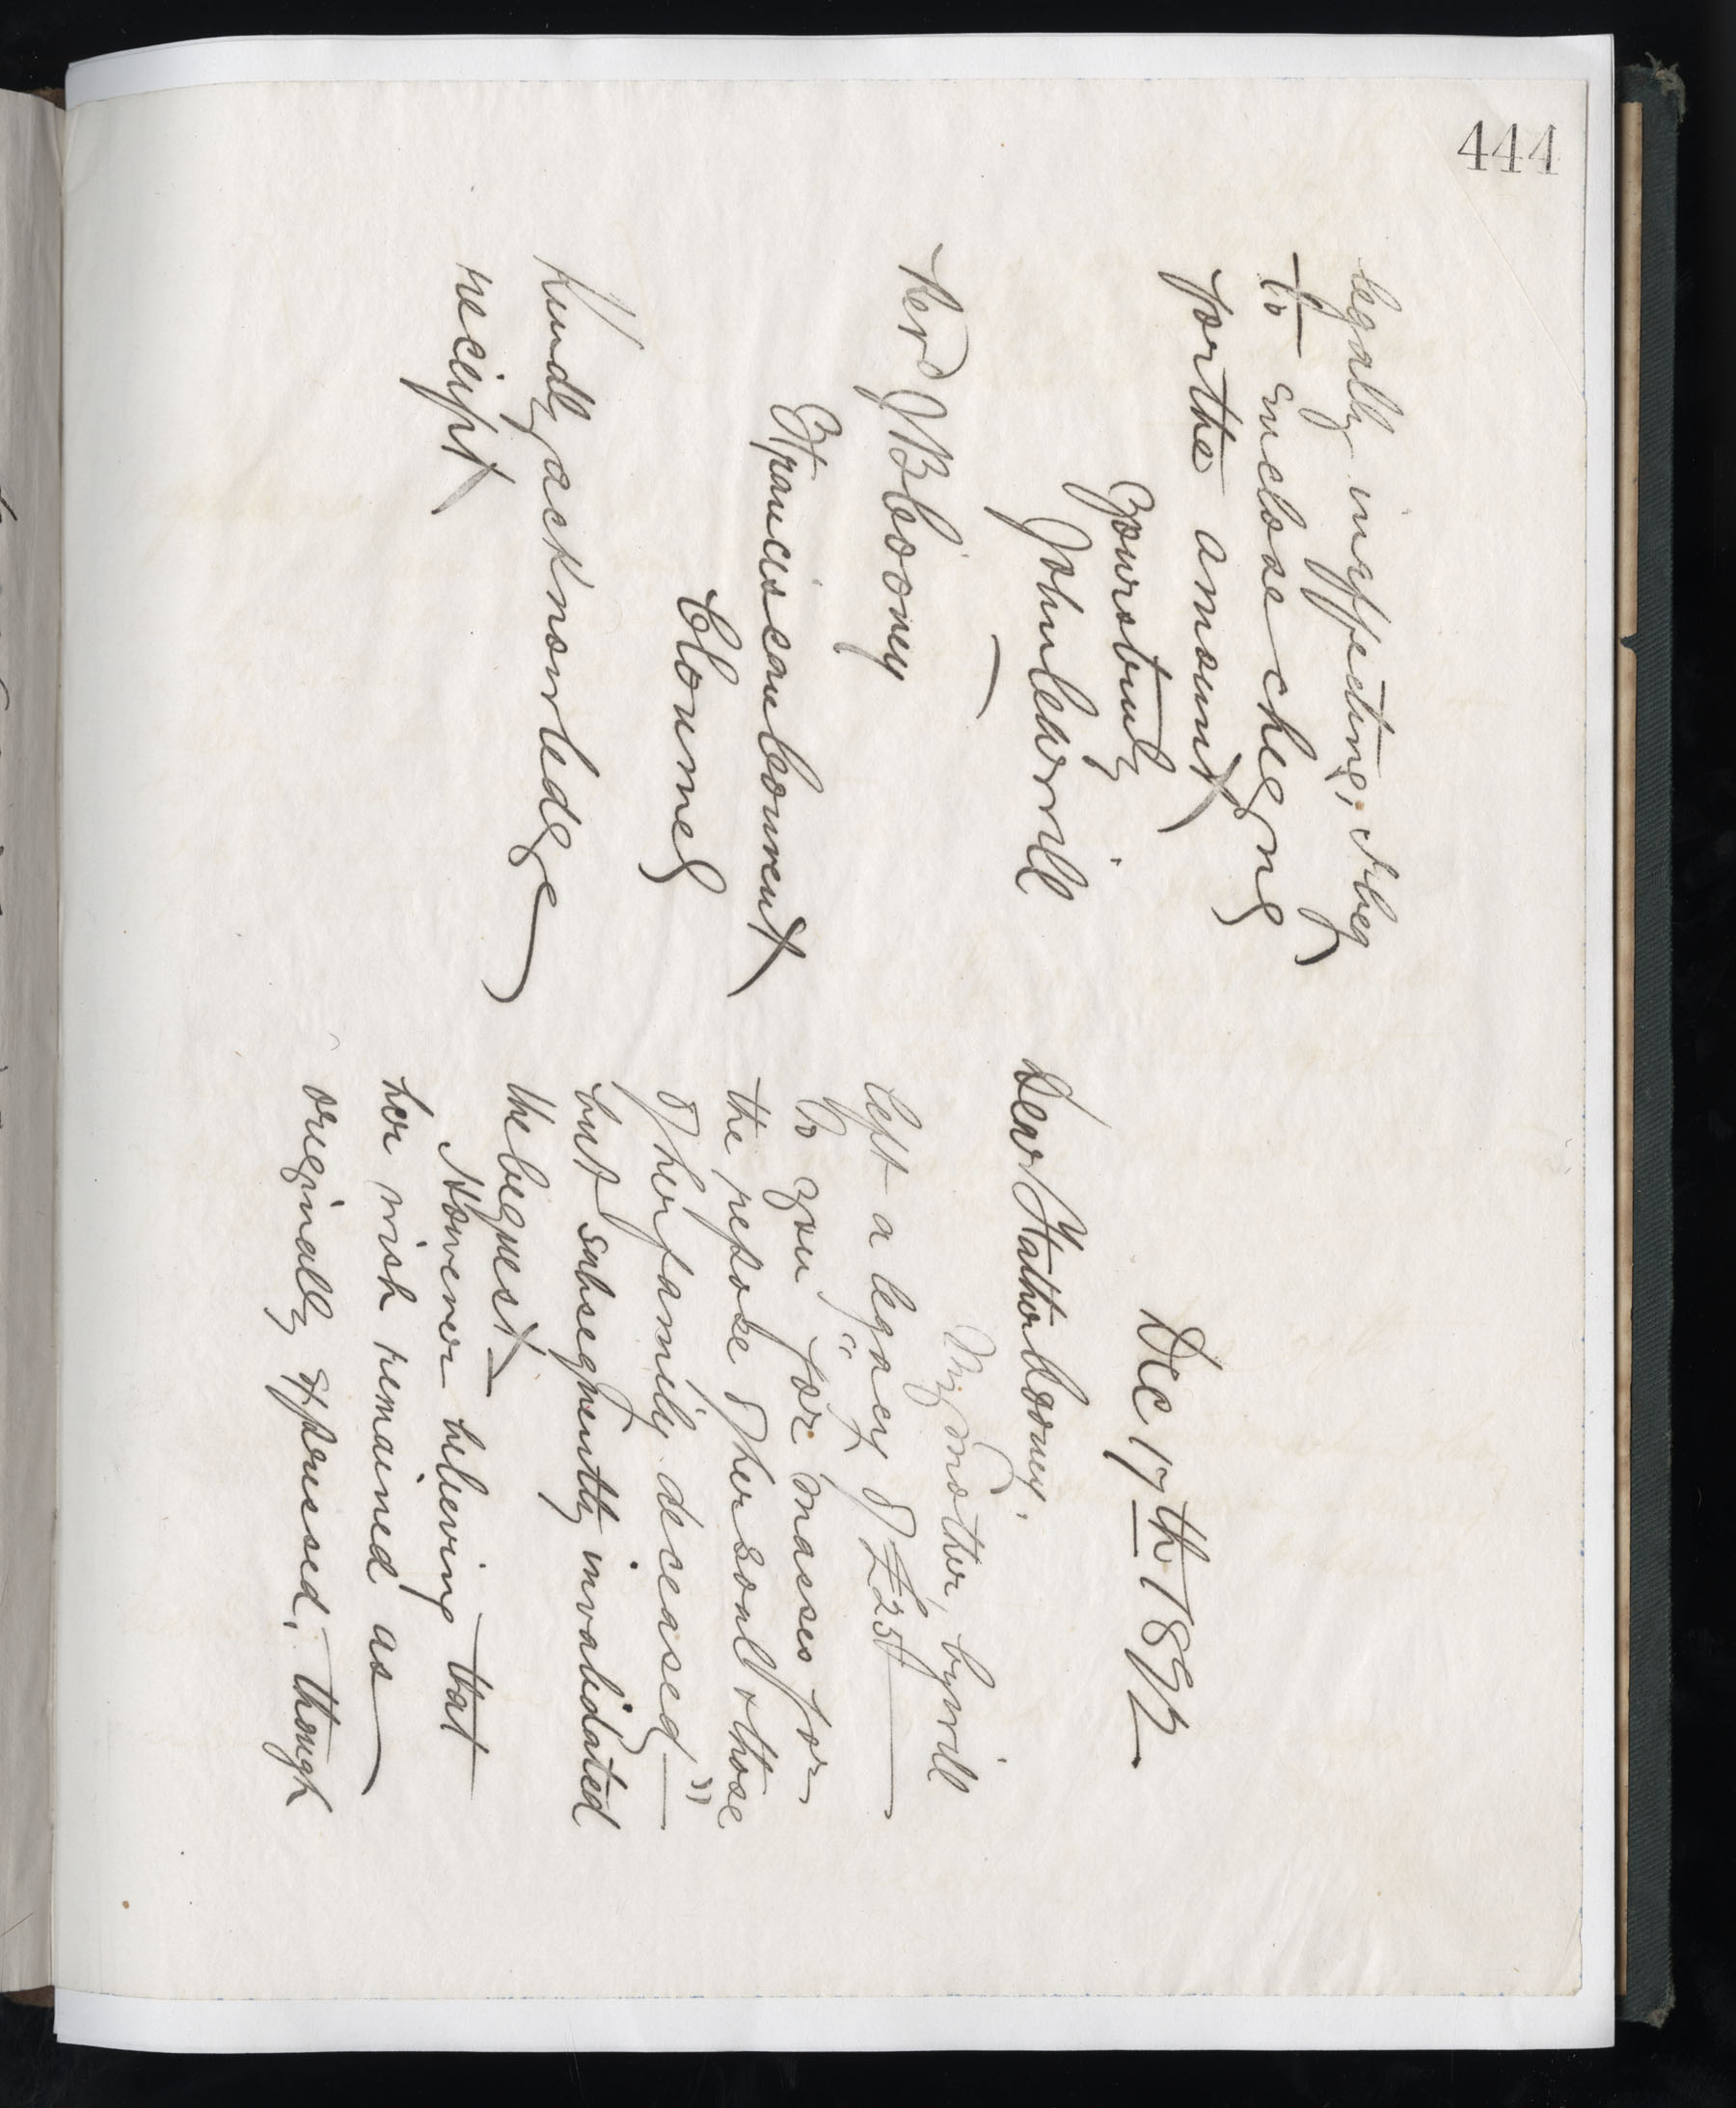 444
Dec 17th 1892
Dear Father Cooney.
My mother, by will
left a legacy of £25
to you "for masses for
the repose of her soul & those
of her family deceased"
but subsequently invalidated
the bequest
However believing that
her wish remained as
originally expressed, though
legally ineffective, I beg
to enclose cheque
for the amount
Yours truly
John Carvill
Revd J B Cooney
Franciscan Convent
Clonmel
Kindly acknowledge
receipt